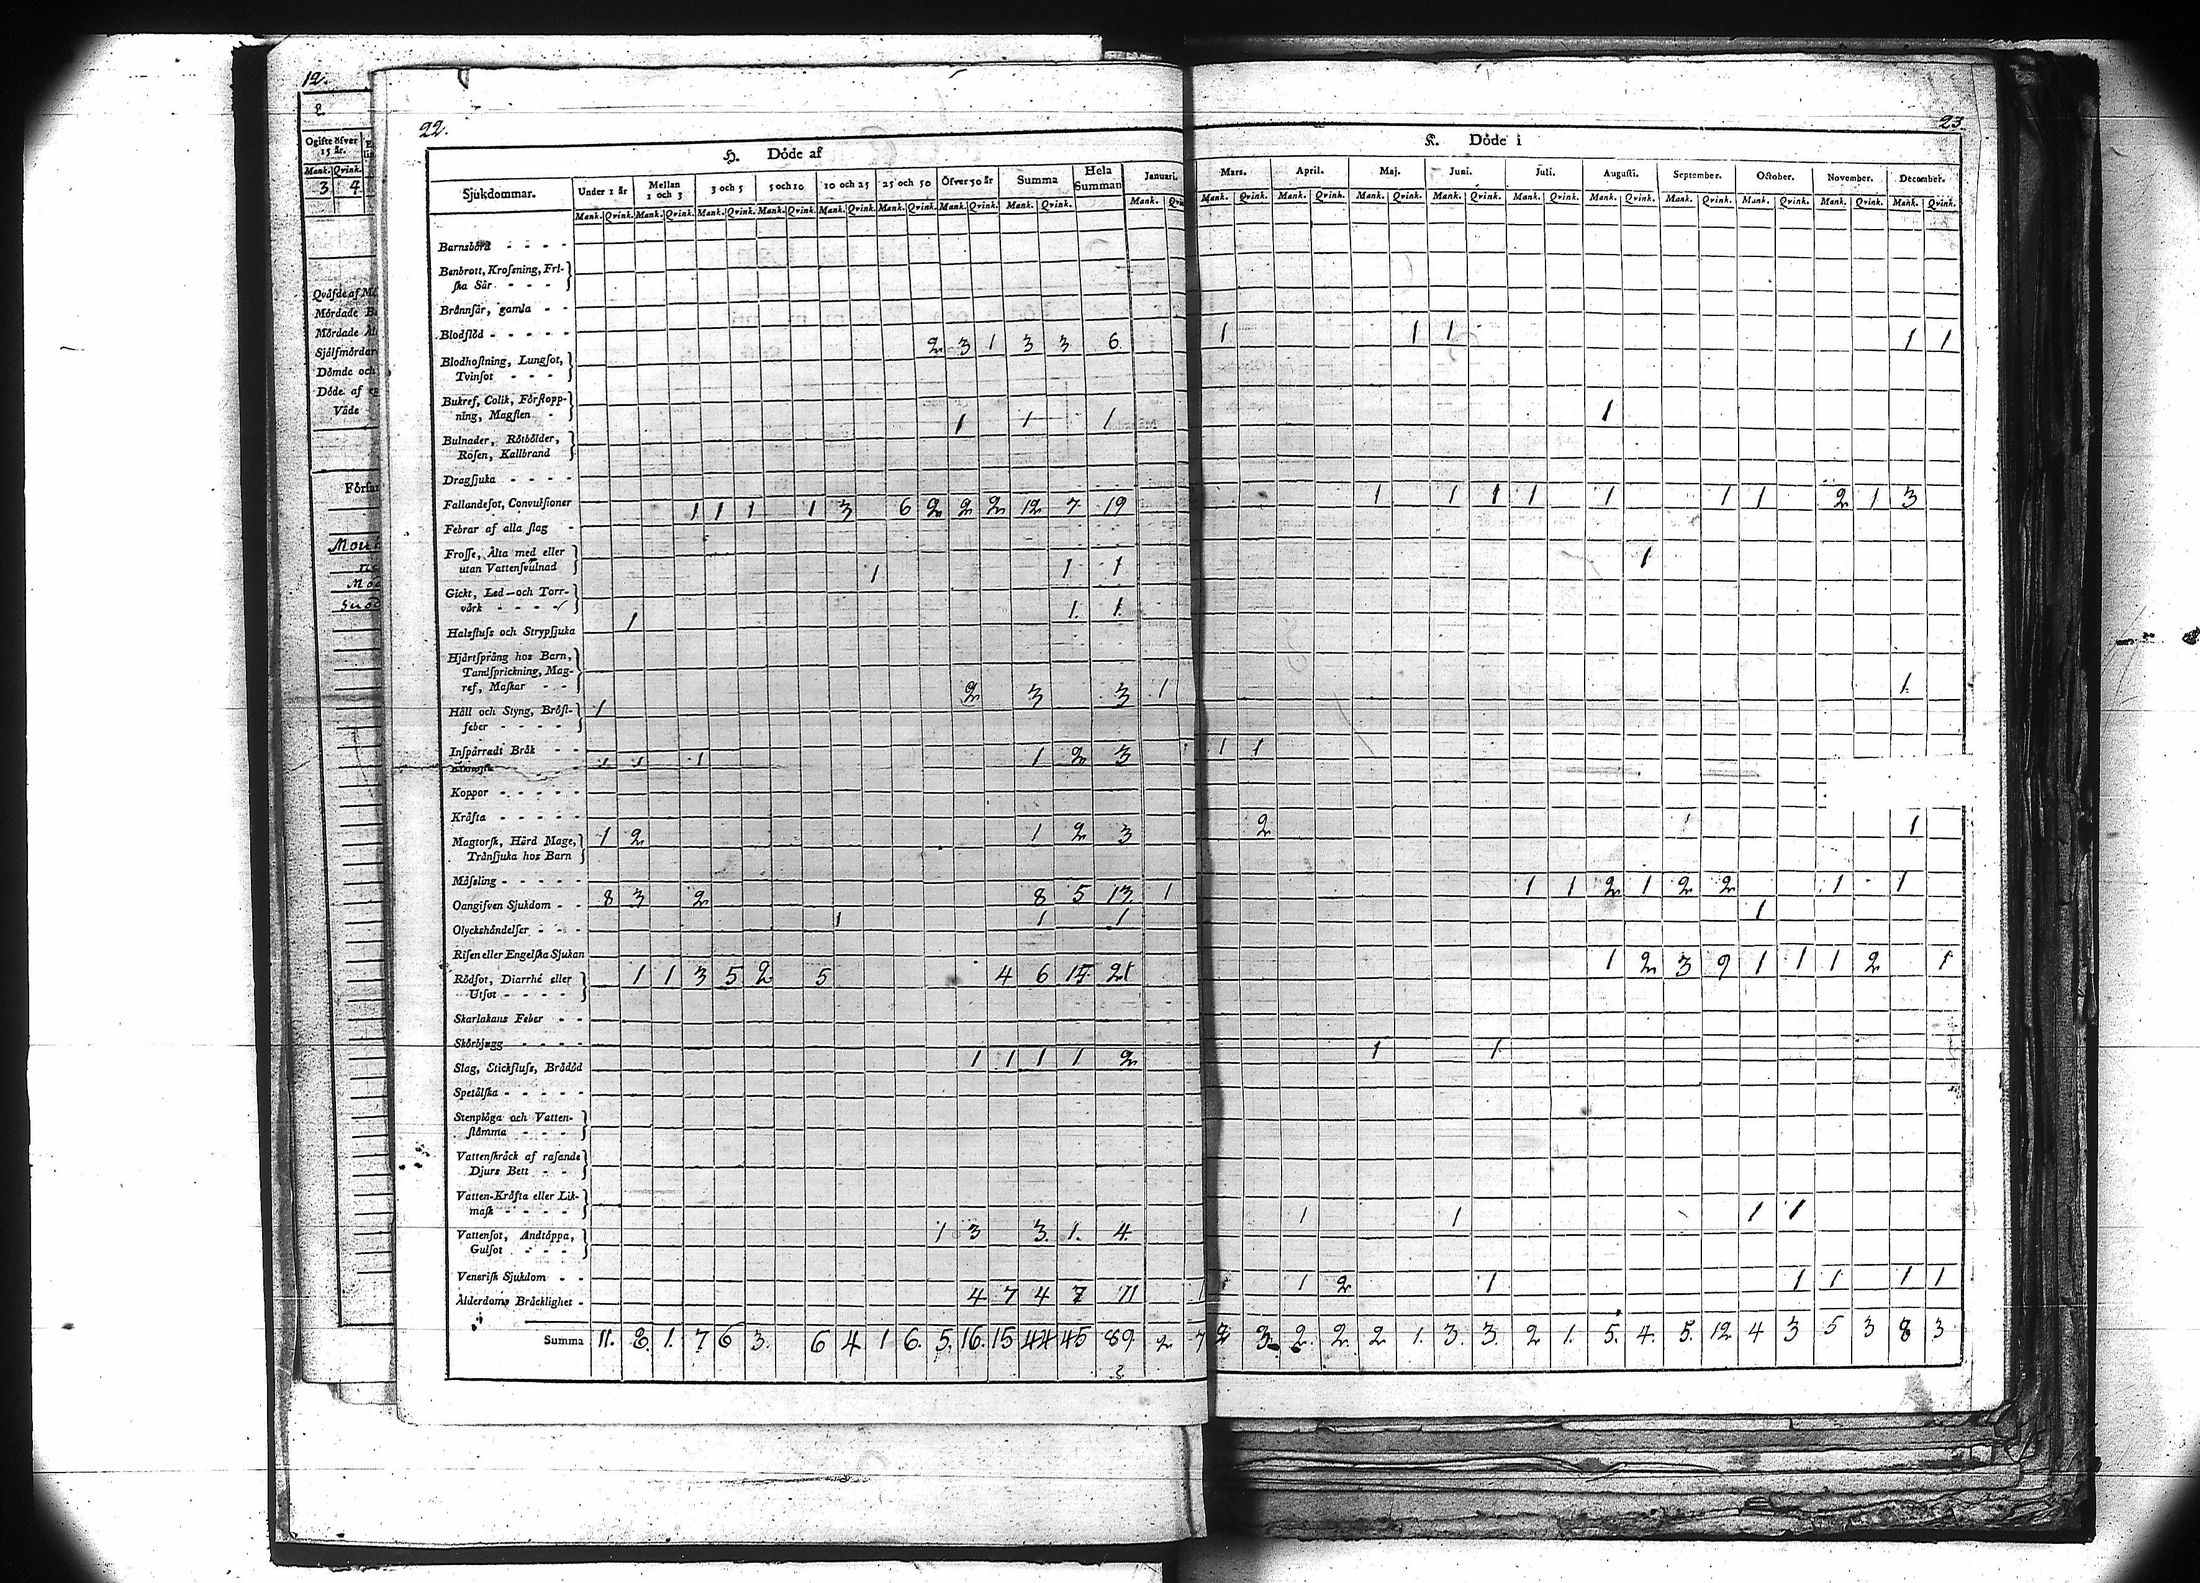 12.
2
Ogifte öfver
15 år.
Mank. Qvink.
3 4
Mördade
Mördade
Sjålfmördar
Dömde och
Döde af
Våde
22.
H. Döde af
Sjukdommar. Under 1 år Mellan 1 och 3 3 och 5 5 och 10 10 och 25 25 och 50 Öfver 50 år Summa Hela Summan Januari.
Mank. Qvink. Mank. Qvink. Mank. Qvink. Mank. Qvink. Mank. Qvink. Mank. Qvink. Mank. Qvink. Mank. Qvink. Mank.
Barnsbörd
Benbrott, Krosening, Fri-
ska Sår
Brånnsår, gamla
Blodflöd
2 3 1 3 3 6
Blodhostning, Lungsot,
Tvinsot
Bukref, Colik, Förstopp-
ning, Magsten
1 1 1
Bulnader, Rötbölder,
Rosen, Kallbrand
Dragsjuka
Fallandesot, Convulsioner 1 1 1 1 3 6 2 2 2 12 7 19
Febrar af alla slag
Frosse, Ålta med eller
utan Vattensvulnad
1 1 1
Gickt, Led-och Torr-
vårk
1 1 1
Halsfluss och Strypsjuka
Hjårtsprång hos Barn,
Tandsprickning, Mag-
ref, Maskar
2 3 3 1
Håll och Styng, Bröst-
feber
1
Inspårradt Bråk
1 1 1 1 2 3
Koppor
Kråfta
Magtorsk, Hård Mage,
Trånsjuka hos Barn
1 2 1 2 3
Måsling
Oangifven Sjukdom 8 3 2 8 5 13 1
1 1 1
Olyckshåndelser
Risen eller Engelska Sjukan
Rödsot, Diarrhé eller
Utsot
1 1 3 5 2 5 4 6 15 21
Skarlakans Feber
Skörbjugg
1 1 1 1 2
Slag, Stickfluss, Brådöd
Spetålska
Stenplåga och Vatten-
ståmma
Vattenskråck af rasande
Djurs Bett
Vatten-Kråfta eller Lik-
mask
Vattensot, Andtåppa,
Gulsot
1 3 3. 1. 4.
Venerisk Sjukdom
4 7 4 7 11 1
Ålderdoms Bråcklighet
Summa 11. 8. 1. 7 6 3. 6 4 1 6. 5. 16. 15 44 45 89 2 7
23
K. Döde i
Mars. April. Maj. Juni. Juli. Augusti. September. October. November. December.
Mank. Qvink. Mank. Qvink. Mank. Qvink. Mank. Qvink. Mank. Qvink. Mank. Qvink. Mank. Qvink. Mank. Qvink. Mank. Qvink. Mank. Qvink.
1 1 1 1 1
1
1 1 1 1 1 1 1 2 1 3
1
1
1 1
2 1
1 1 2 1 2 2 1 1
1
1 2 3 9 1 1 1 2 1
1 1
1 1 1 1
1 2 1 1 1 1 1
3. 2. 2. 2 1. 3 3. 2 1. 5. 4. 5. 12 4 3 5 3 8 3